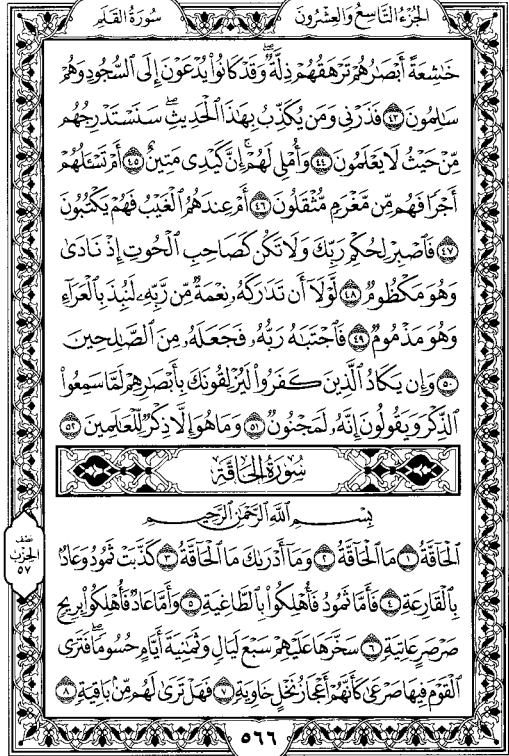 سُورَةُ القَلَمِ
الجُزْءُ التَّاسِعُ وَالعِشْرُونَ
خَٰشِعَةً أَبْصَٰرُهُمْ تَرْهَقُهُمْ ذِلَّةٌ ۖ وَقَدْ كَانُوا۟ يُدْعَوْنَ إِلَى ٱلسُّجُودِ وَهُمْ
سَٰلِمُونَ ٤٣ فَذَرْنِى وَمَن يُكَذِّبُ بِهَٰذَا ٱلْحَدِيثِ ۖ سَنَسْتَدْرِجُهُم
مِّنْ حَيْثُ لَا يَعْلَمُونَ ٤٤ وَأُمْلِى لَهُمْ ۚ إِنَّ كَيْدِى مَتِينٌ ٤٥ أَمْ تَسْـَٔلُهُمْ
أَجْرًا فَهُم مِّن مَّغْرَمٍ مُّثْقَلُونَ ٤٦ أَمْ عِندَهُمُ ٱلْغَيْبُ فَهُمْ يَكْتُبُونَ
٤٧ فَٱصْبِرْ لِحُكْمِ رَبِّكَ وَلَا تَكُن كَصَاحِبِ ٱلْحُوتِ إِذْ نَادَىٰ
وَهُوَ مَكْظُومٌ ٤٨ لَّوْلَآ أَن تَدَٰرَكَهُۥ نِعْمَةٌ مِّن رَّبِّهِۦ لَنُبِذَ بِٱلْعَرَآءِ
وَهُوَ مَذْمُومٌ ٤٩ فَٱجْتَبَٰهُ رَبُّهُۥ فَجَعَلَهُۥ مِنَ ٱلصَّٰلِحِينَ
٥٠ وَإِن يَكَادُ ٱلَّذِينَ كَفَرُوا۟ لَيُزْلِقُونَكَ بِأَبْصَٰرِهِمْ لَمَّا سَمِعُوا۟
ٱلذِّكْرَ وَيَقُولُونَ إِنَّهُۥ لَمَجْنُونٌ ٥١ وَمَا هُوَ إِلَّا ذِكْرٌ لِّلْعَٰلَمِينَ ٥٢
سُورَةُ الحَاقَّةِ
بِسْمِ ٱللَّهِ ٱلرَّحْمَٰنِ ٱلرَّحِيمِ
ٱلْحَآقَّةُ ١ مَا ٱلْحَآقَّةُ ٢ وَمَآ أَدْرَىٰكَ مَا ٱلْحَآقَّةُ ٣ كَذَّبَتْ ثَمُودُ وَعَادٌۢ
بِٱلْقَارِعَةِ ٤ فَأَمَّا ثَمُودُ فَأُهْلِكُوا۟ بِٱلطَّاغِيَةِ ٥ وَأَمَّا عَادٌ فَأُهْلِكُوا۟ بِرِيحٍ
صَرْصَرٍ عَاتِيَةٍ ٦ سَخَّرَهَا عَلَيْهِمْ سَبْعَ لَيَالٍ وَثَمَٰنِيَةَ أَيَّامٍ حُسُومًا ۖ فَتَرَى
ٱلْقَوْمَ فِيهَا صَرْعَىٰ كَأَنَّهُمْ أَعْجَازُ نَخْلٍ خَاوِيَةٍ ٧ فَهَلْ تَرَىٰ لَهُم مِّنۢ بَاقِيَةٍ ٨
نصف
الحزب
٥٧
٥٦٦